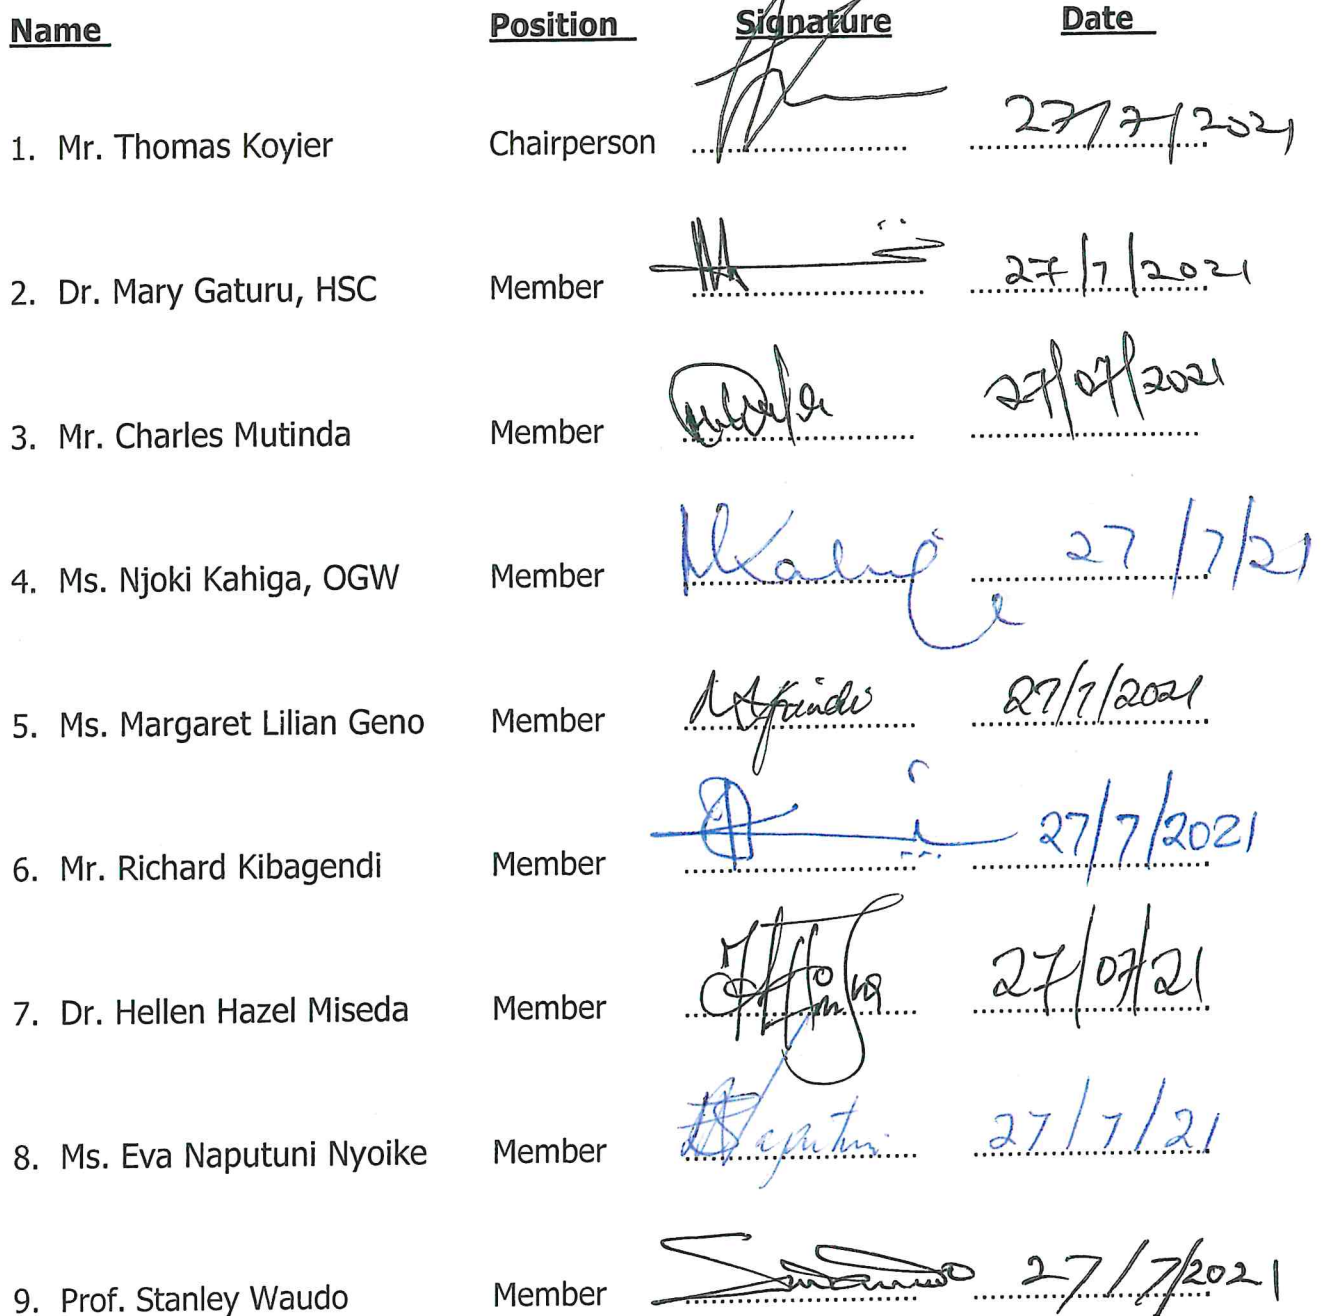 Name Position Signature Date
1. Mr. Thomas Koyier Chairperson 27/7/2021
2. Dr. Mary Gaturu, HSC Member 27/7/2021
3. Mr. Charles Mutinda Member 27/07/2021
4. Ms. Njoki Kahiga, OGW Member 27/7/21
5. Ms. Margaret Lilian Geno Member 27/7/2021
6. Mr. Richard Kibagendi Member 27/7/2021
7. Dr. Hellen Hazel Miseda Member 27/07/21
8. Ms. Eva Naputuni Nyoike Member 27/7/21
9. Prof. Stanley Waudo Member 27/7/2021